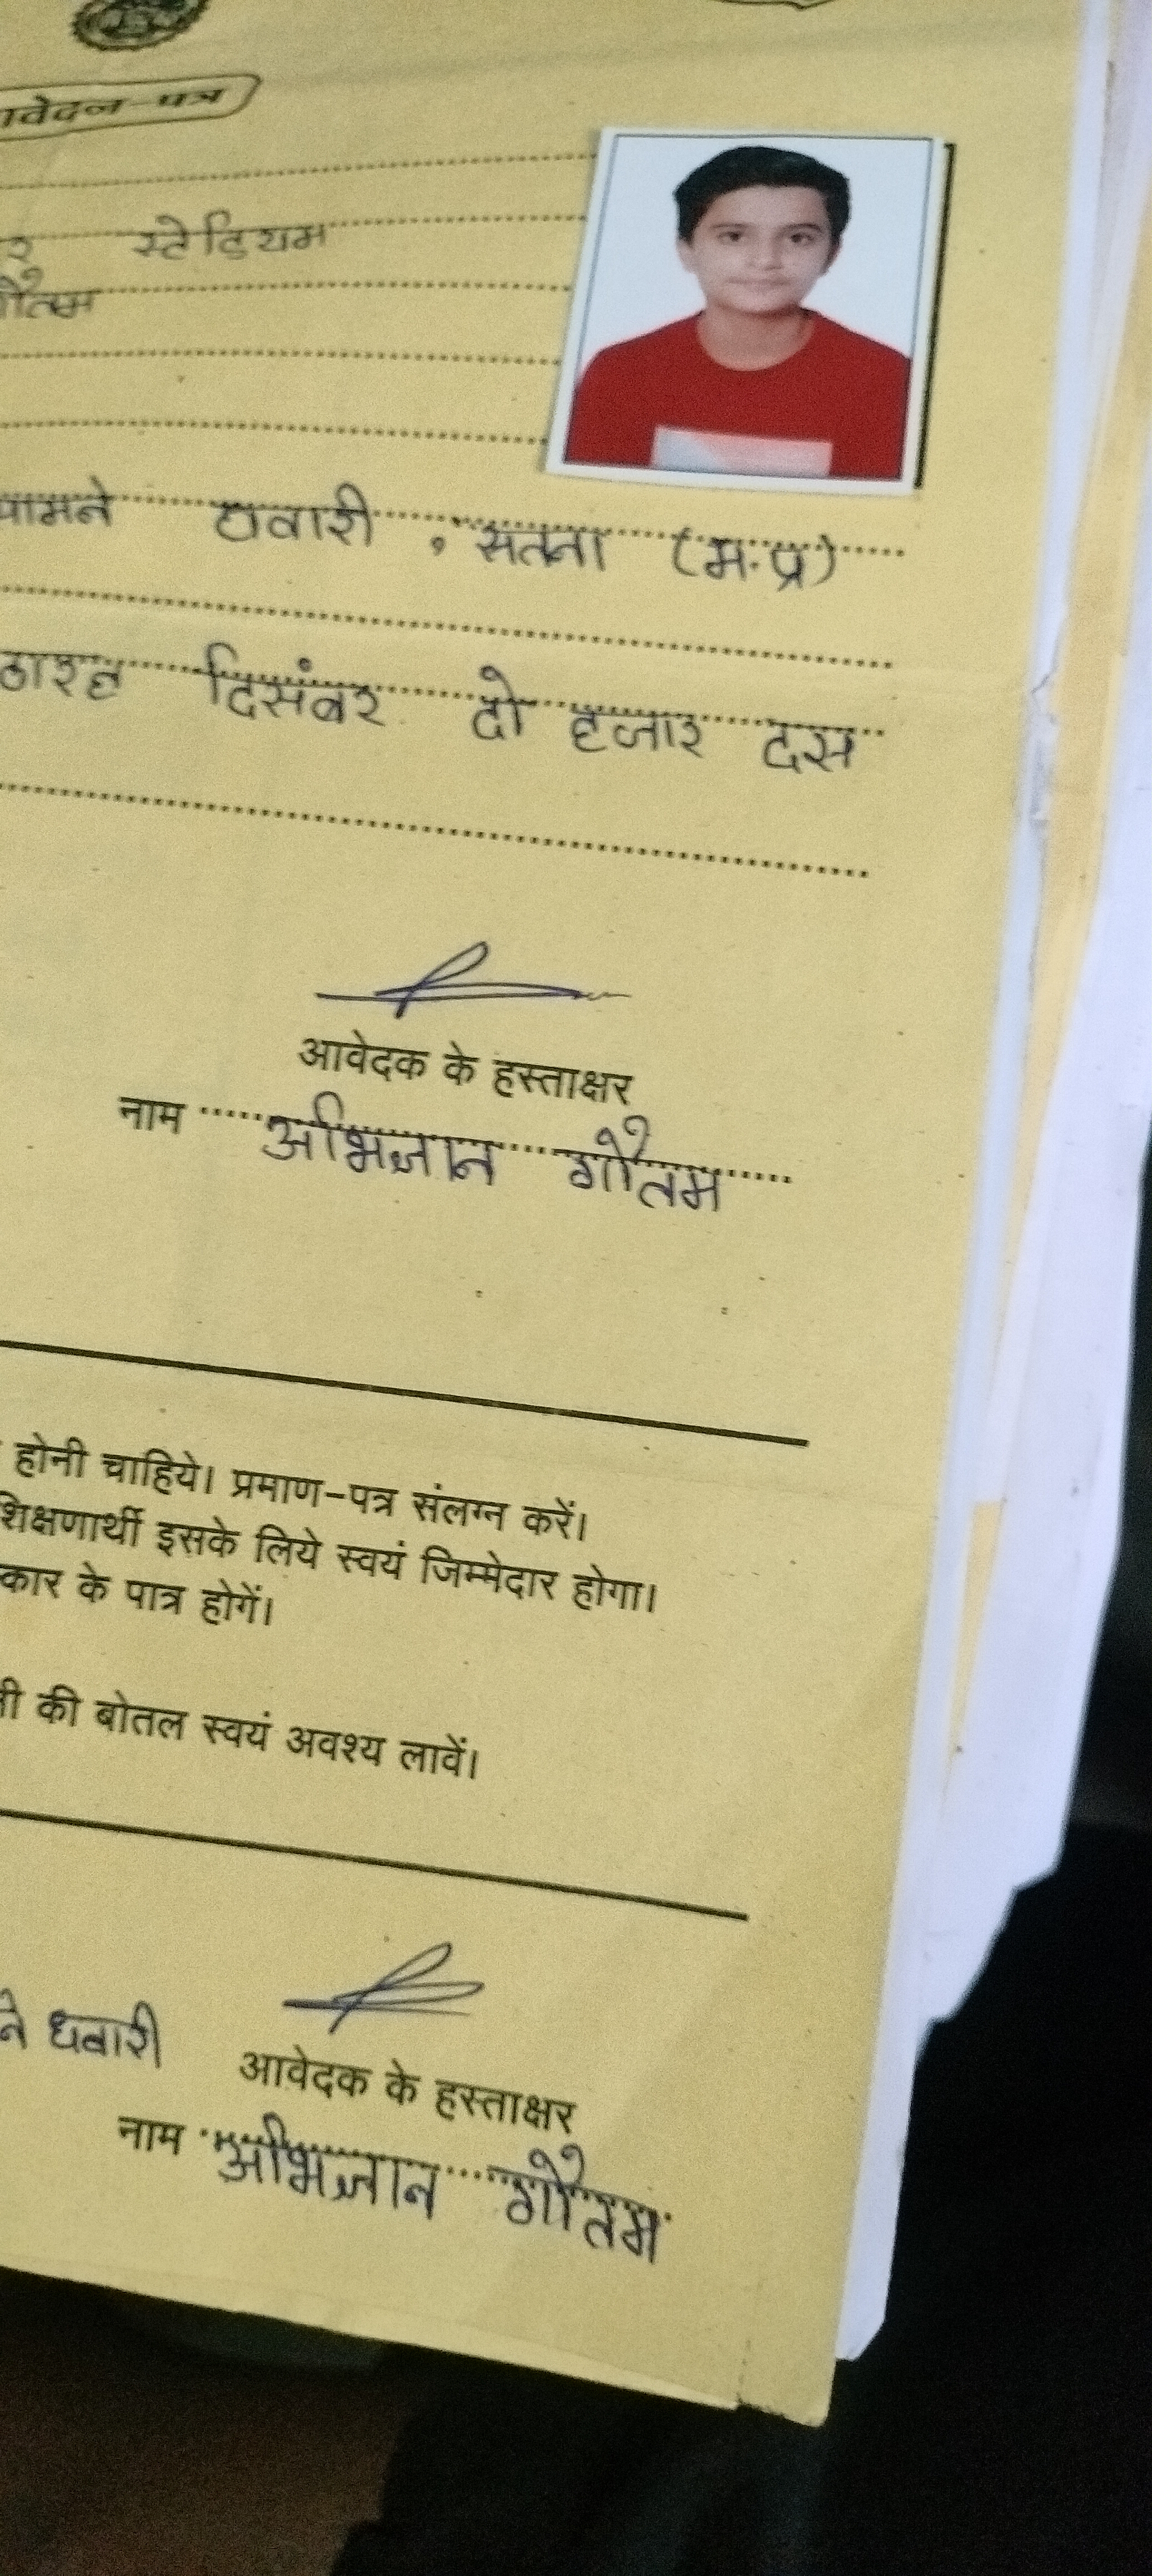 आवेदन-पत्र
स्टेडियम
गौतम
सामने धवारी, सतना (म.प्र)
दिसंबर दो हजार दस
आवेदक के हस्ताक्षर
नाम अभिज्ञान गौतम
होनी चाहिये। प्रमाण-पत्र संलग्न करें।
शिक्षणार्थी इसके लिये स्वयं जिम्मेदार होगा।
कार के पात्र होगें।
की बोतल स्वयं अवश्य लावें।
ने धवारी
आवेदक के हस्ताक्षर
नाम अभिज्ञान गौतम